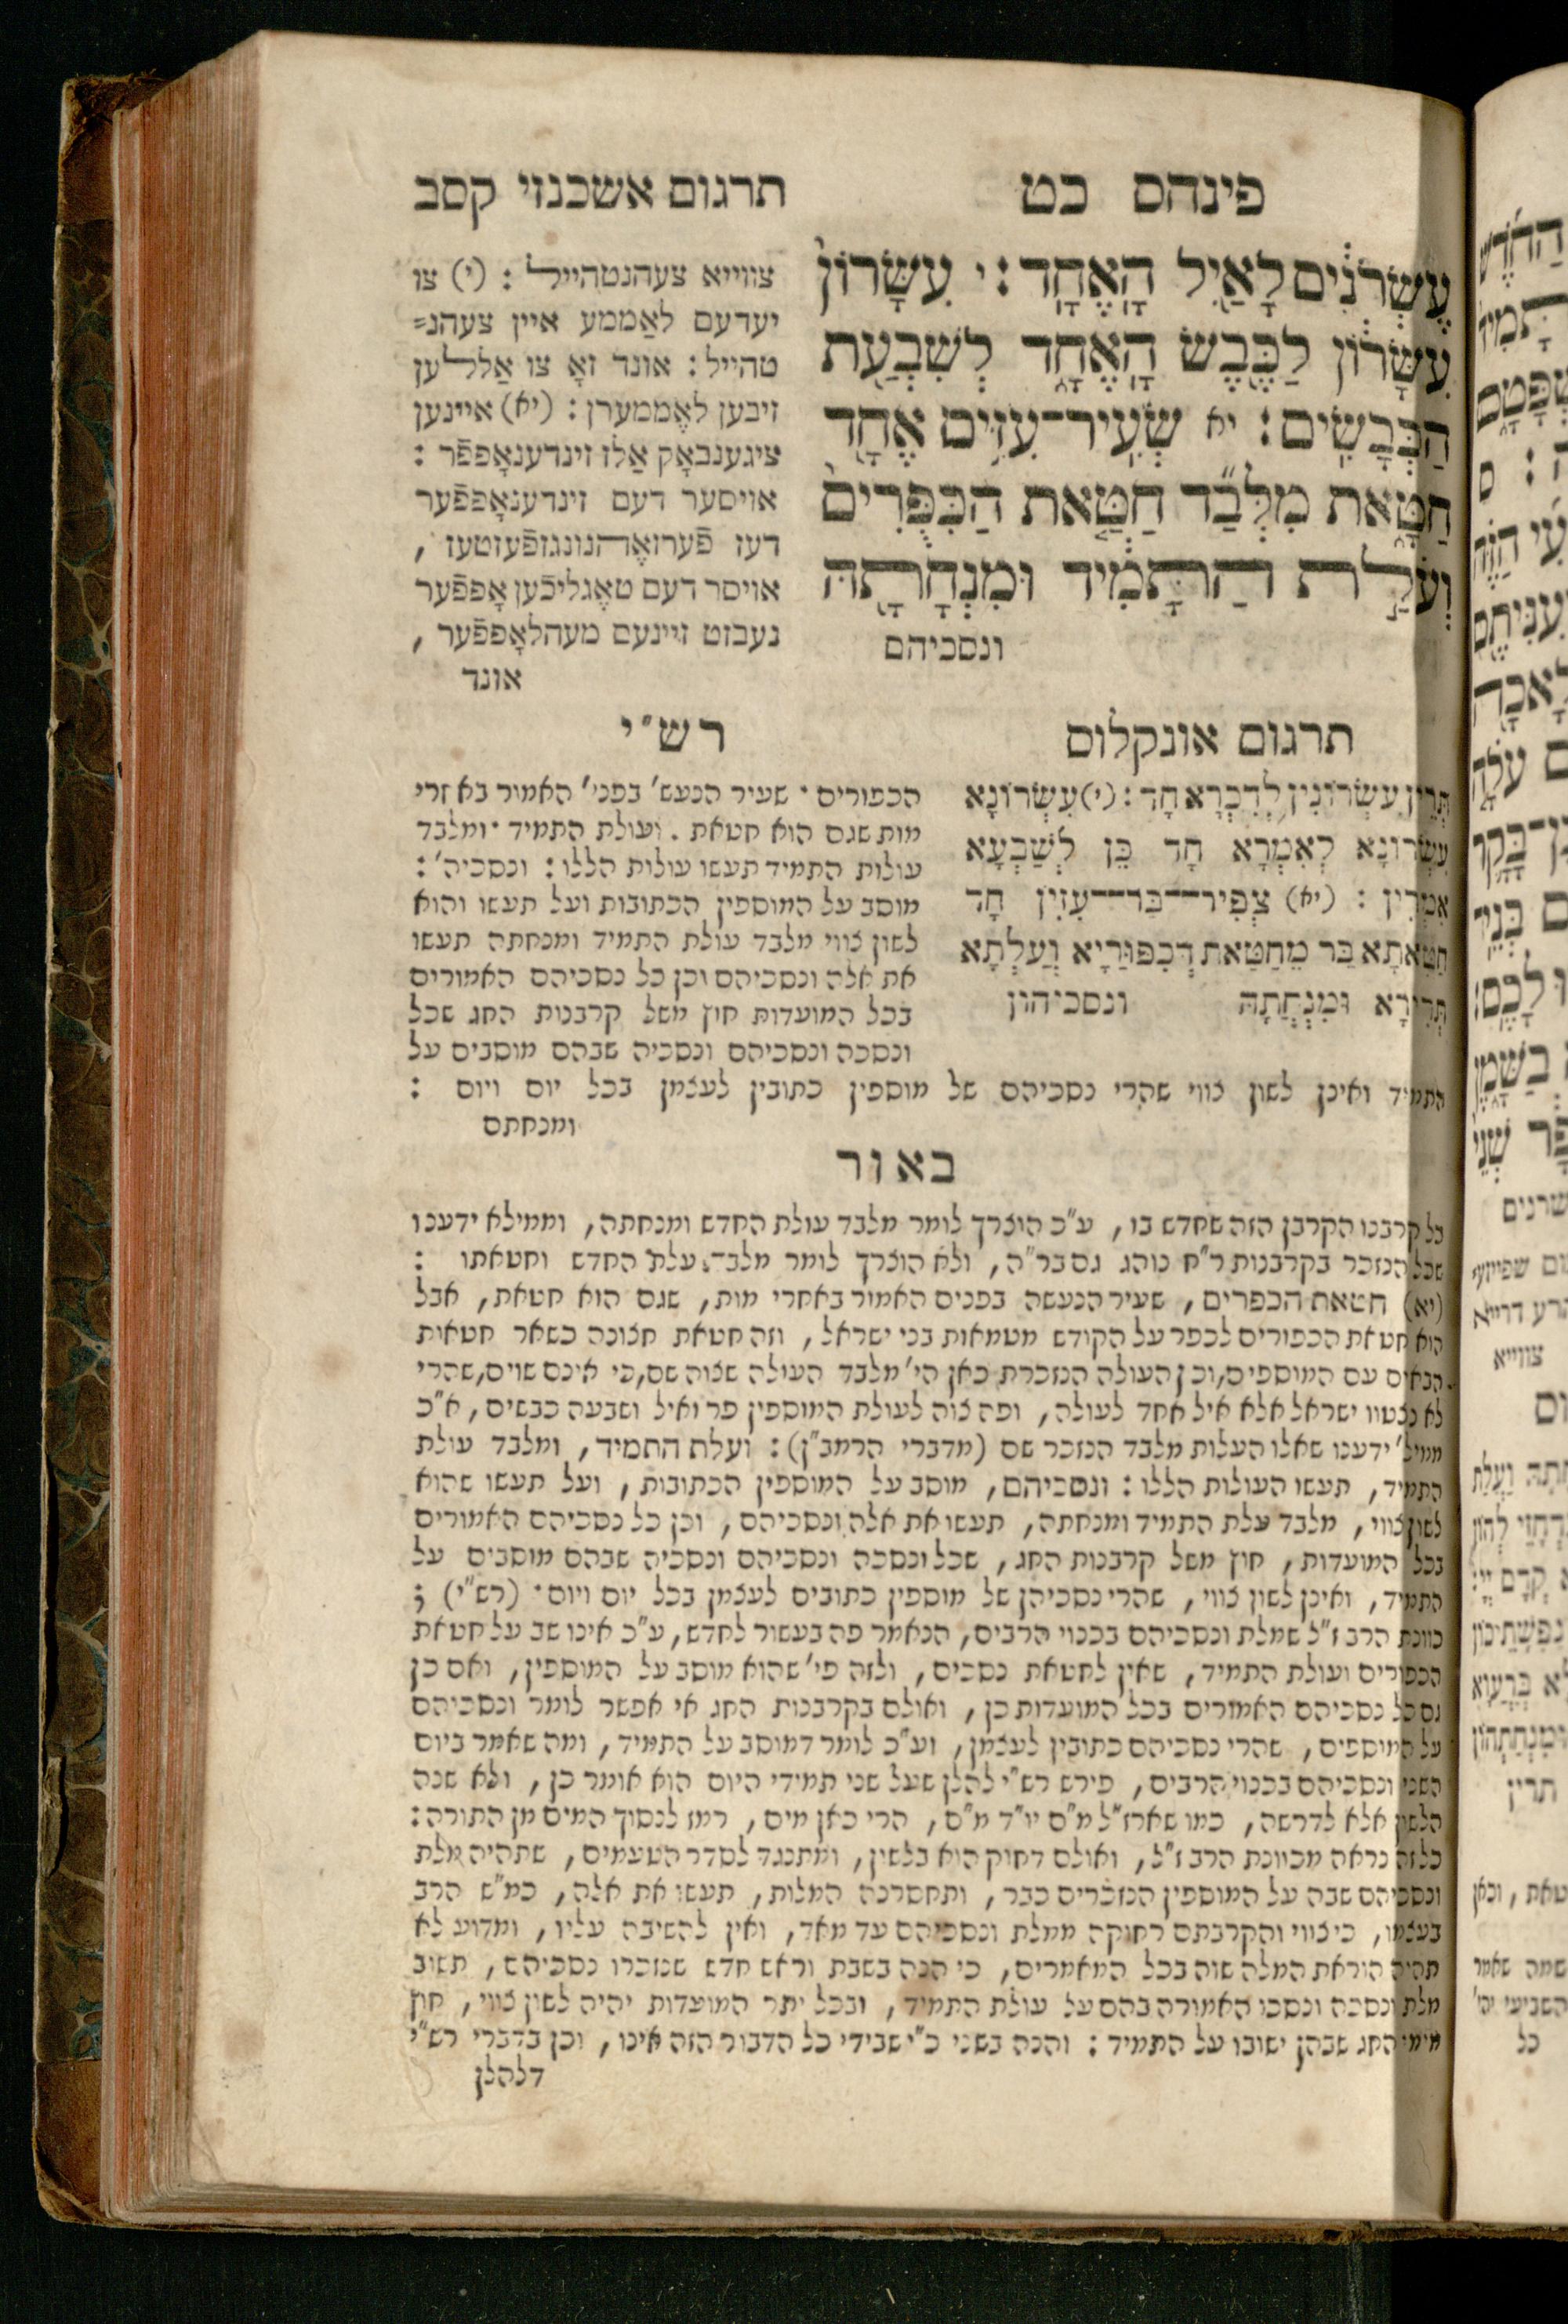 פינהס כט
תרגום אשכנזי קסב
עֶשְׂרֹנִ֔ים לָאַ֖יִל הָאֶחָֽד׃ י עִשָּׂרוֹן֙
עִשָּׂר֔וֹן לַכֶּ֖בֶשׂ הָאֶחָ֑ד לְשִׁבְעַ֖ת
הַכְּבָשִֽׂים׃ יא שְׂעִיר־עִזִּ֥ים אֶחָ֖ד
חַטָּ֑את מִלְּבַ֞ד חַטַּ֤את הַכִּפֻּרִים֙
וְעֹלַ֣ת הַתָּמִ֔יד וּמִנְחָתָ֖הּ
ונסכיהם
צווייא צעהנטהייל : (י) צו
יעדעם לאַממע איין צעהנ=
טהייל : אונד זאָ צו אַללען
זיבען לאֶממערן : (יא) איינען
ציגענבאָק אַלז זינדענאָפפֿר :
אויסער דעם זינדענאָפפֿער
דעז פֿערזאֶהנונגזפֿעזטעז ,
אויסר דעם טאֶגליכֿען אָפפֿער
נעבזט זיינעם מעהלאָפפֿער ,
אונד
תרגום אונקלוס
תְּרֵין עִשְׂרוֹנִין לְדִכְרָא חָד : (י) עִשְׂרוֹנָא
עִשְׂרוֹנָא לְאִמְרָא חָד כֵּן לְשַׁבְעָא
אִמְּרִין : (יא) צְפִיר־בַּר־עִזִּין חָד
חַטָּאתָא בַּר מֵחַטַּאת דְּכִפּוּרַיָא וַעֲלְתָא
תְּדִירָא וּמִנְחֲתָהּ ונסכיהון
רש״י
הכפורים · שעיר הנעש׳ בפני׳ האמור באחרי
מות שגם הוא חטאת . ועולת התמיד · ומלבד
עולות התמיד תעשו עולות הללו : ונסכיה׳ :
מוסב על המוספין הכתובות ועל תעשו והוא
לשון צווי מלבד עולת התמיד ומנחתה תעשו
את אלה ונסכיהם וכן כל נסכיהם האמורים
בכל המועדות חוץ משל קרבנות החג שכל
ונסכה ונסכיהם ונסכיה שבהם מוסבים על
התמיד ואינן לשון צווי שהרי נסכיהם של מוספין כתובין לעצמן בכל יום ויום :
ומנחתם
באור
כל קרבנו הקרבן הזה שחדש בו , ע״כ הוצרך לומר מלבד עולת החדש ומנחתה , וממילא ידענו
שכל הנזכר בקרבנות ר״ח נוהג גם בר״ה , ולא הוצרך לומר מלבד עלת החדש וחטאתו :
(יא) חטאת הכפרים , שעיר הנעשה בפנים האמור באחרי מות , שגם הוא חטאת , אבל
הוא חטאת הכפורים לכפר על הקודש מטמאות בני ישראל , וזה חטאת חצונה כשאר חטאות
הבאים עם המוספים , וכן העולה הנזכרת כאן הי׳ מלבד העולה שצוה שם , כי אינם שוים , שהרי
לא נצטוו ישראל אלא איל אחד לעולה , ופה צוה לעולת המוספין פר ואיל ושבעה כבשים , א״כ
ממיל׳ ידענו שאלו העלות מלבד הנזכר שם (מדברי הרמב״ן) : ועלת התמיד , ומלבד עולת
התמיד , תעשו העולות הללו : ונסכיהם , מוסב על המוספין הכתובות , ועל תעשו שהוא
לשון צווי , מלבד עלת התמיד ומנחתה , תעשו את אלה ונסכיהם , וכן כל נסכיהם האמורים
בכל המועדות , חוץ משל קרבנות החג , שכל ונסכה ונסכיהם ונסכיה שבהם מוסבים על
התמיד , ואינן לשון צווי , שהרי נסכיהן של מוספין כתובים לעצמן בכל יום ויום · (רש״י) ;
כוונת הרב ז״ל שמלת ונסכיהם בכנוי הרבים , הנאמר פה בעשור לחדש , ע״כ אינו שב על חטאת
הכפורים ועולת התמיד , שאין לחטאת נסכים , ולזה פי׳ שהוא מוסב על המוספין , ואם כן
גם כל נסכיהם האמורים בכל המועדות כן , ואולם בקרבנות החג אי אפשר לומר ונסכיהם
על המוספים , שהרי נסכיהם כתובין לעצמן , וע״כ לומר דמוסב על התמיד , ומה שאמר ביום
השני ונסכיהם בכנוי הרבים , פירש רש״י להלן שעל שני תמידי היום הוא אומר כן , ולא שנה
הלשון אלא לדרשה , כמו שארז״ל מ״ם יו״ד מ״ם , הרי כאן מים , רמז לנסוך המים מן התורה :
כל זה נראה מכוונת הרב ז״ל , ואולם דחוק הוא בלשין , ומתנגד לסדר הטעמים , שתהיה מלת
ונסכיהם שבה על המוספין הנזכרים כבר , ותחסרנה המלות , תעשו את אלה , כמ״ש הרב
בעצמו , כי צווי והקרבתם רחוקה ממלת ונסכיהם עד מאד , ואין להשיבה עליו , ומדוע לא
תהיה הוראת המלה שוה בכל המאמרים , כי הנה בשבת וראש חדש שנזכרו נסכיהם , תשוב
מלת ונסכה ונסכו האמורה בהם על עולת התמיד , ובכל יתר המועדות יהיה לשון צווי , חוץ
מימי החג שבהן ישובו על התמיד : והנה בשני כ״י שבידי כל הדבור הזה אינו , וכן בדברי רש״י
דלהלן